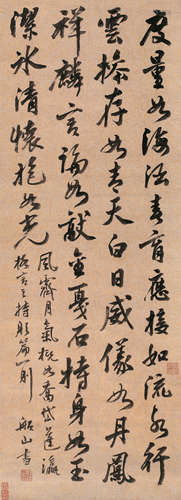 度量如海涵春育應接如流水行
雲操存如青天白日威儀如丹鳳
祥麟言論如敲金戛石持身如玉
潔冰清懷抱如光
風霽月氣概如喬岱蓬瀛
格言之持躬篇一則
船山書